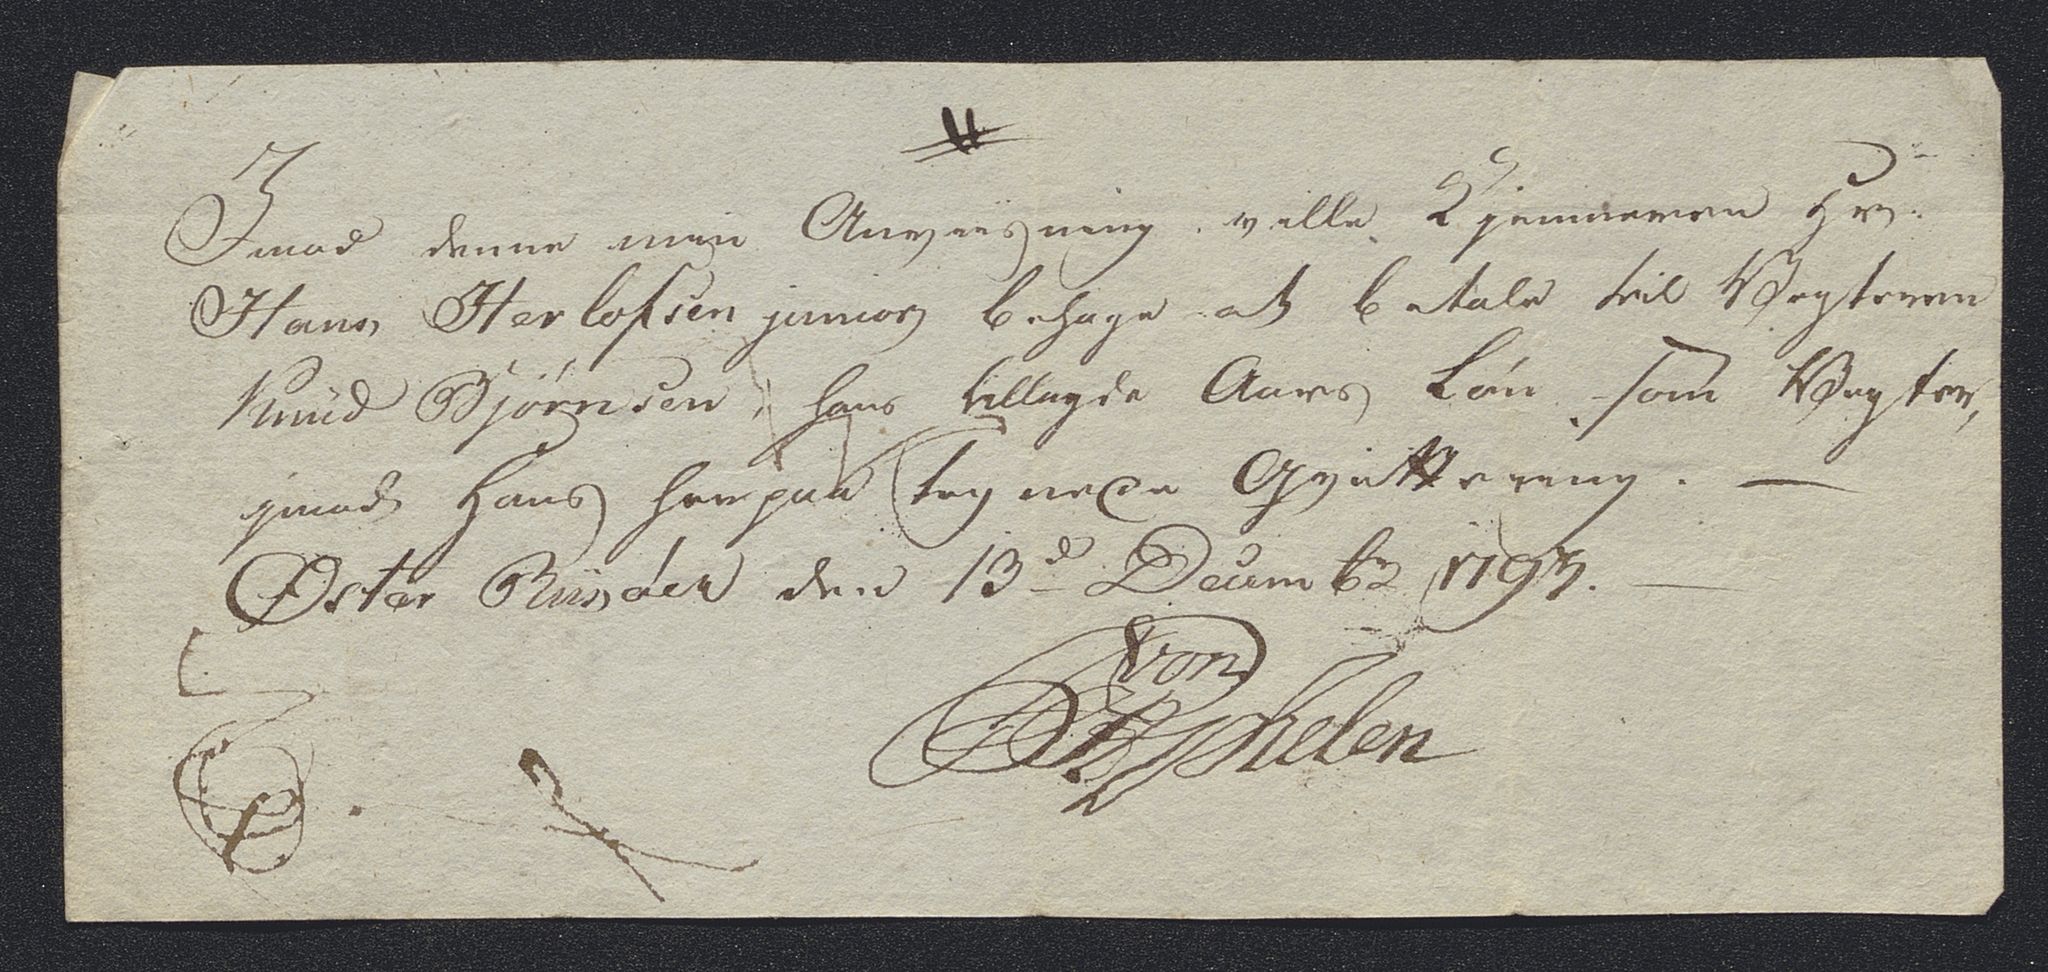 Imod denne min Anviisning ville Kjemneren Hr.
Hans Herlofsen junior behage at betale til Vægteren
Knud Bjørnsen, hans tillagde Aars Løn som Vægter,
imod Hans herpaa tegnede Qvittering. —
Øster Riisøer den 13d Decembr 1793. —
von
Ypkelen